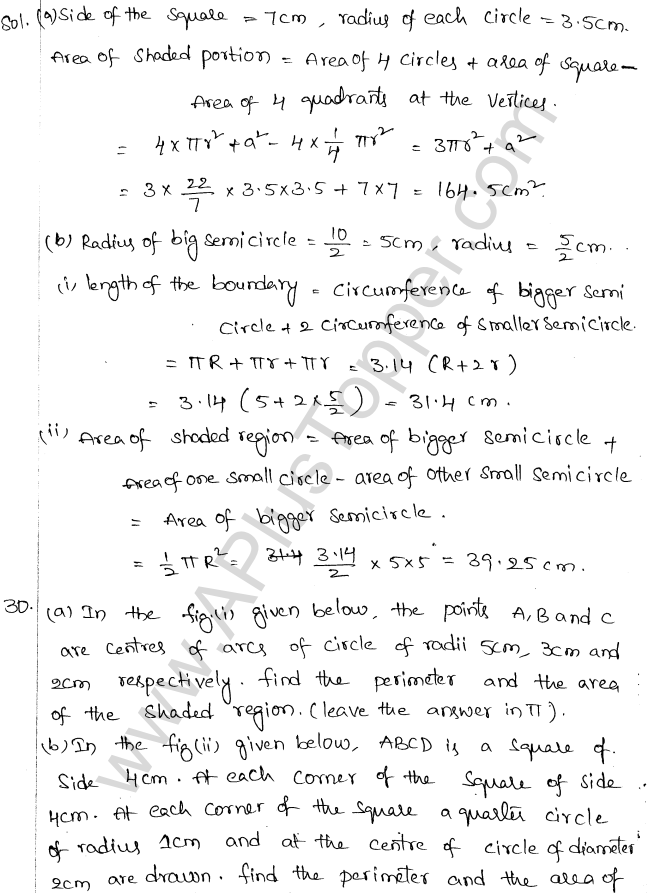 Sol. (a) Side of the square = 7cm, radius of each circle = 3.5cm.
Area of shaded portion = Area of 4 circles + area of square -
Area of 4 quadrants at the vertices.
= 4 × πr² + a² - 4 × 1/4 πr² = 3πr² + a²
= 3 × 22/7 × 3.5 × 3.5 + 7 × 7 = 164.5cm².
(b) Radius of big semicircle = 10/2 = 5cm, radius = 5/2 cm.
(i) length of the boundary = circumference of bigger semi
circle + 2 circumference of smaller semicircle.
= πR + πr + πr = 3.14 (R + 2r)
= 3.14 (5 + 2 × 5/2) = 31.4 cm.
(ii) Area of shaded region = Area of bigger semicircle +
Area of one small circle - area of other small semicircle
= Area of bigger semicircle.
= 1/2 πR² = 31.4 3.14/2 × 5×5 = 39.25 cm.
30. (a) In the fig.(i) given below, the points A, B and C
are centres of arcs of circle of radii 5cm, 3cm and
2cm respectively. find the perimeter and the area
of the shaded region. (leave the answer in π).
(b) In the fig(ii) given below, ABCD is a square of
side 4cm. At each corner of the square of side
4cm. At each corner of the square a quarter circle
of radius 1cm and at the centre of circle of diameter
2cm are drawn. find the perimeter and the area of
www.APlusTopper.com